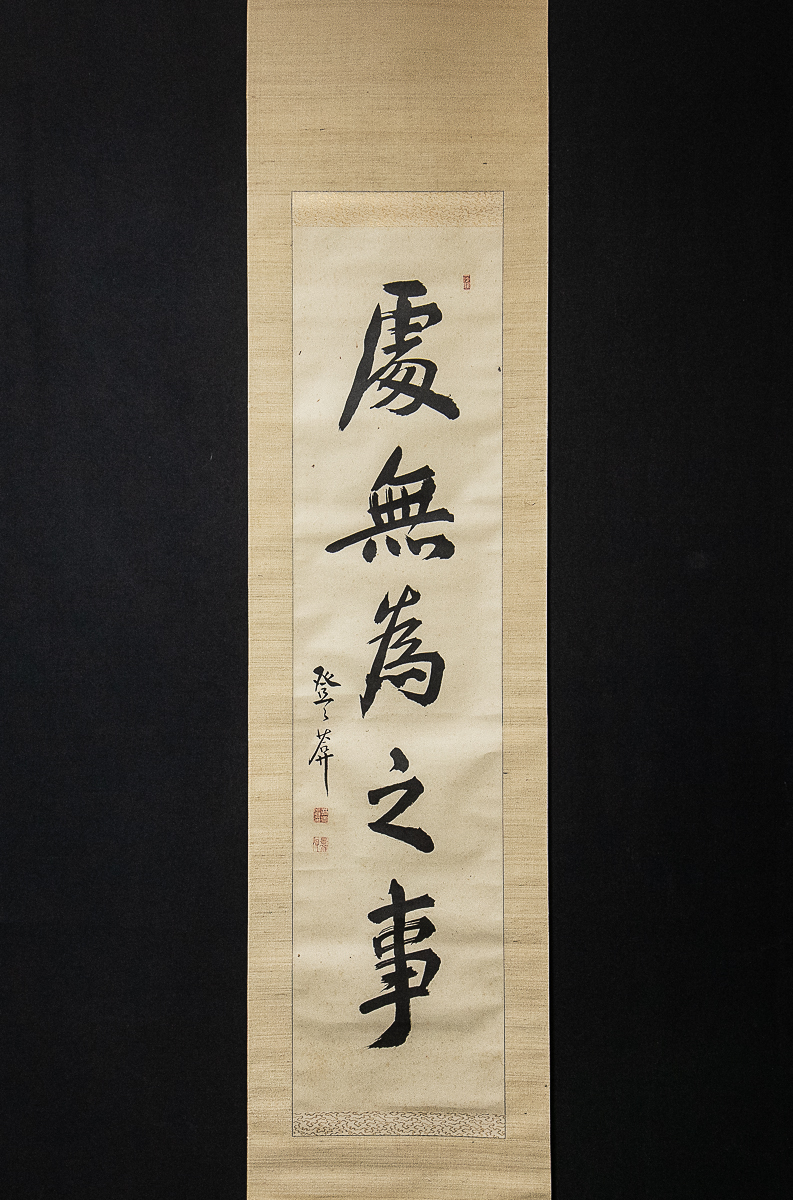 處無為之事